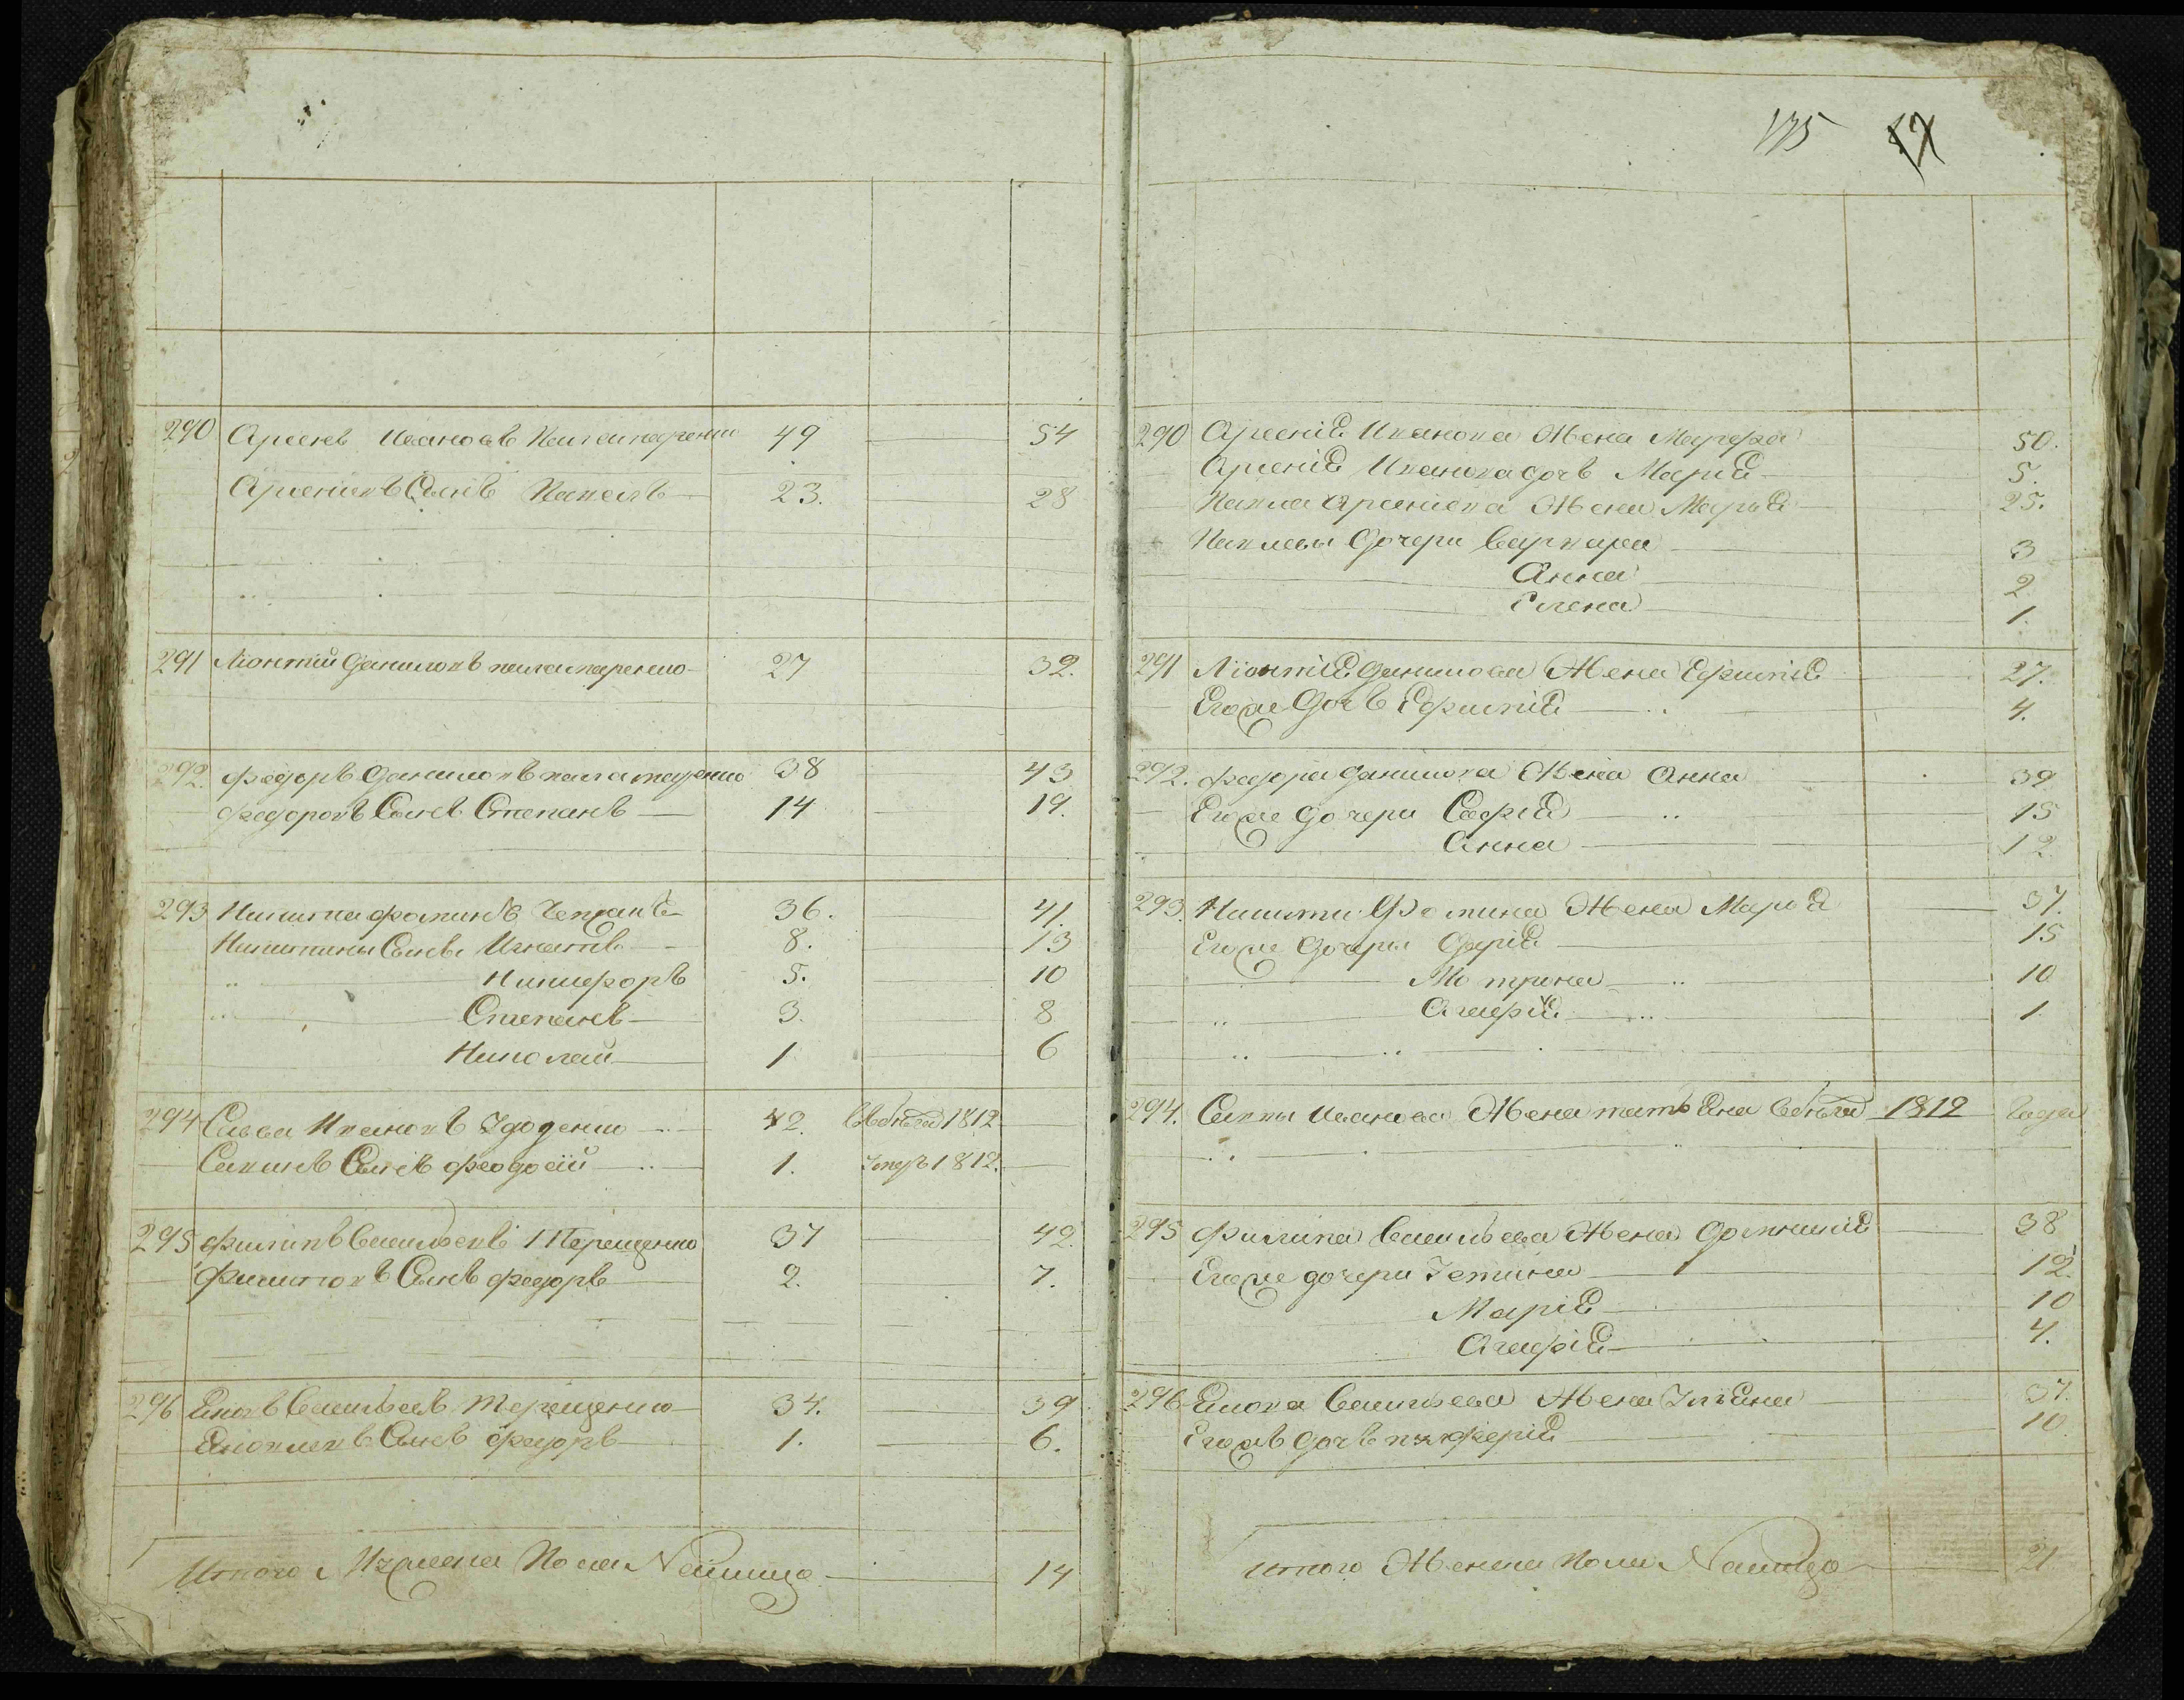 175
290 Арсенъ Ивановъ Паламаренко 49 54
Арсеніевъ Сынъ Павелъ 23. 28
291 Ліонтій Даниловъ паламаренко 27 32.
292. Федоръ Даниловъ паламаренко 38 43
Федоровъ Сынъ Степанъ 14 19.
293 Никита Фоминъ 36. 41.
Никитины Сыны Игнатъ 8. 13
Никифоръ 5. 10
Степанъ 3. 8
Николай 1 6
294 Савва Ивановъ 42. 1812
Саввинъ Сынъ Феодосій 1. Умеръ 1812.
295 Филипъ Васильевъ Терещенко 37 42.
Филиповъ Сынъ Федоръ 2. 7.
296 Яковъ Васильевъ Терещенко 34. 39
Яковлевъ Сынъ Федоръ 1. 6.
Итого Мужеска Пола Наличо 14
290 Арсенія Иванова Жена Марфа 50.
Арсенія Иванова дочь Марія 5.
Павла Арсеніева Жена Марья 25.
Павлевы Дочери Варвара 3
Анна 2
Елена 1.
291 Ліонтія Данилова Жена Ефимія 27.
Егоже Дочь Ефимія 4.
292. Федора Данилова Жена Анна 39
Егоже дочери Софія 15
Анна 12
293. Никиты Фомина Жена Марья 37.
Егоже Дочери Дарія 15
Мотрона 10
Агафія 1
294. Саввы Иванова Жена 1812 Года
295 Филипа Васильева Жена Домникія 38
Егоже дочери Устина 12.
Марія 10
Агафія 4.
296 Якова Васильева Жена Ульяна 37.
Егожъ Дочь 10
Итого Женска Пола Наличо 21